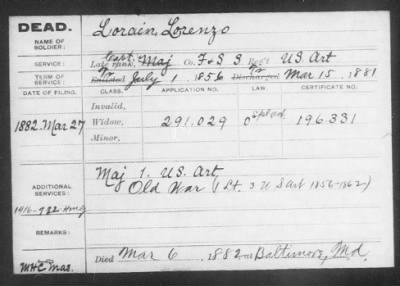 DEAD.
NAME OF SOLDIER:
Lorain, Lorenzo
SERVICE:
Late rank, Capt. Maj Co. F & S 3 Reg't U.S. Art
TERM OF SERVICE:
Enlisted July 1, 1856 Discharged Mar 15, 1881
DATE OF FILING. CLASS. APPLICATION NO. LAW. CERTIFICATE NO.
Invalid,
1882. Mar 27 Widow, 291.029 196.331
Minor,
ADDITIONAL SERVICES:
Maj 1. U.S. Art
Old War (1 Lt. 3 U S Art 1856-1862)
REMARKS:
Died Mar 6, 1882, at Baltimore, Md.